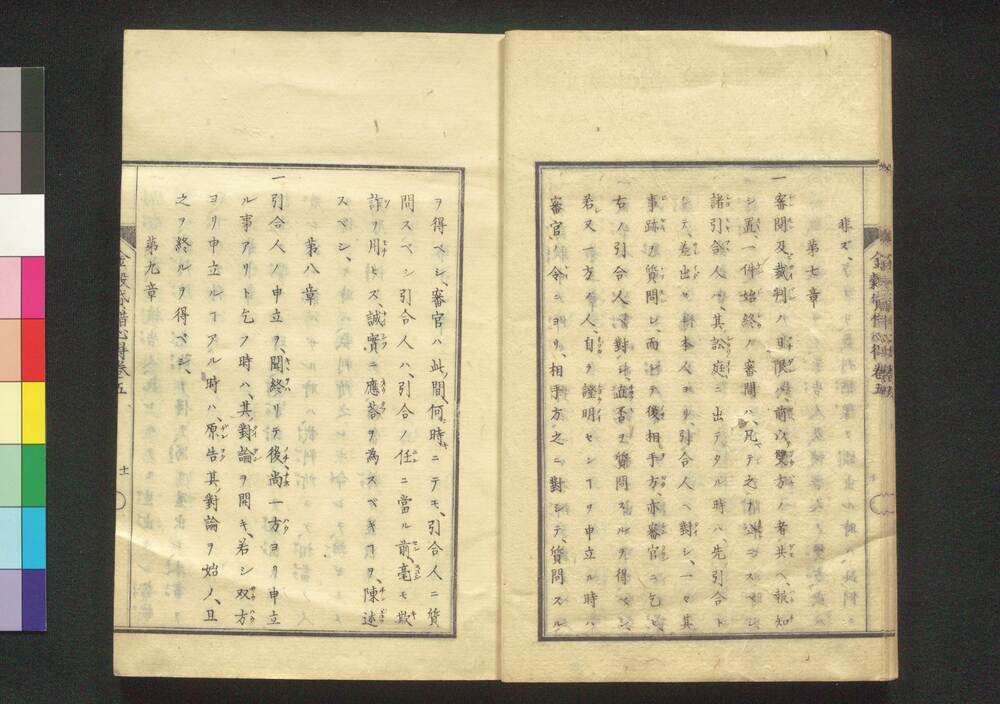 非ズ、
第七章
一審問及裁判ハ、日限ハ、前以雙方ノ者共ヘ、報知
シ置、一件始終ノ審問ハ、凡テ之ヲスベシ、
諸引合人ハ、其訟庭ニ出デタル時ハ、先引合ト
シテ、差出セシ本人ヨリ、引合人ヘ對シ、一々其
事跡ヲ質問シ、而シテ後相手方、亦審官ニ乞ヒ、
右ノ引合人ニ對シ、直否ヲ質問スルヲ得ベシ、
若又一方ノ本人、自ラ證明センヿヲ申立ル時ハ
審官ノ令ニヨリ、相手方之ニ對シテ、質問スル
ヲ得ベシ、審官ハ此間何時ニテモ、引合人ニ質
問スベシ引合人ハ、引合ノ任ニ當ル前、毫モ欺
詐ヲ用ヒズ、誠實ニ應荅ヲ為スベキヿヲ、陳述
スベシ、
第八章
一引合人ノ申立ヲ、聞終リテ後尚一方ヨリ申立
ル事アリト乞フ時ハ、其對論ヲ開キ、若シ双方
ヨリ申立ルヿアル時ハ、原告其對論ヲ始メ、且
之ヲ終ルヲ得ベシ、
第九章
金穀貸借心得巻五
十